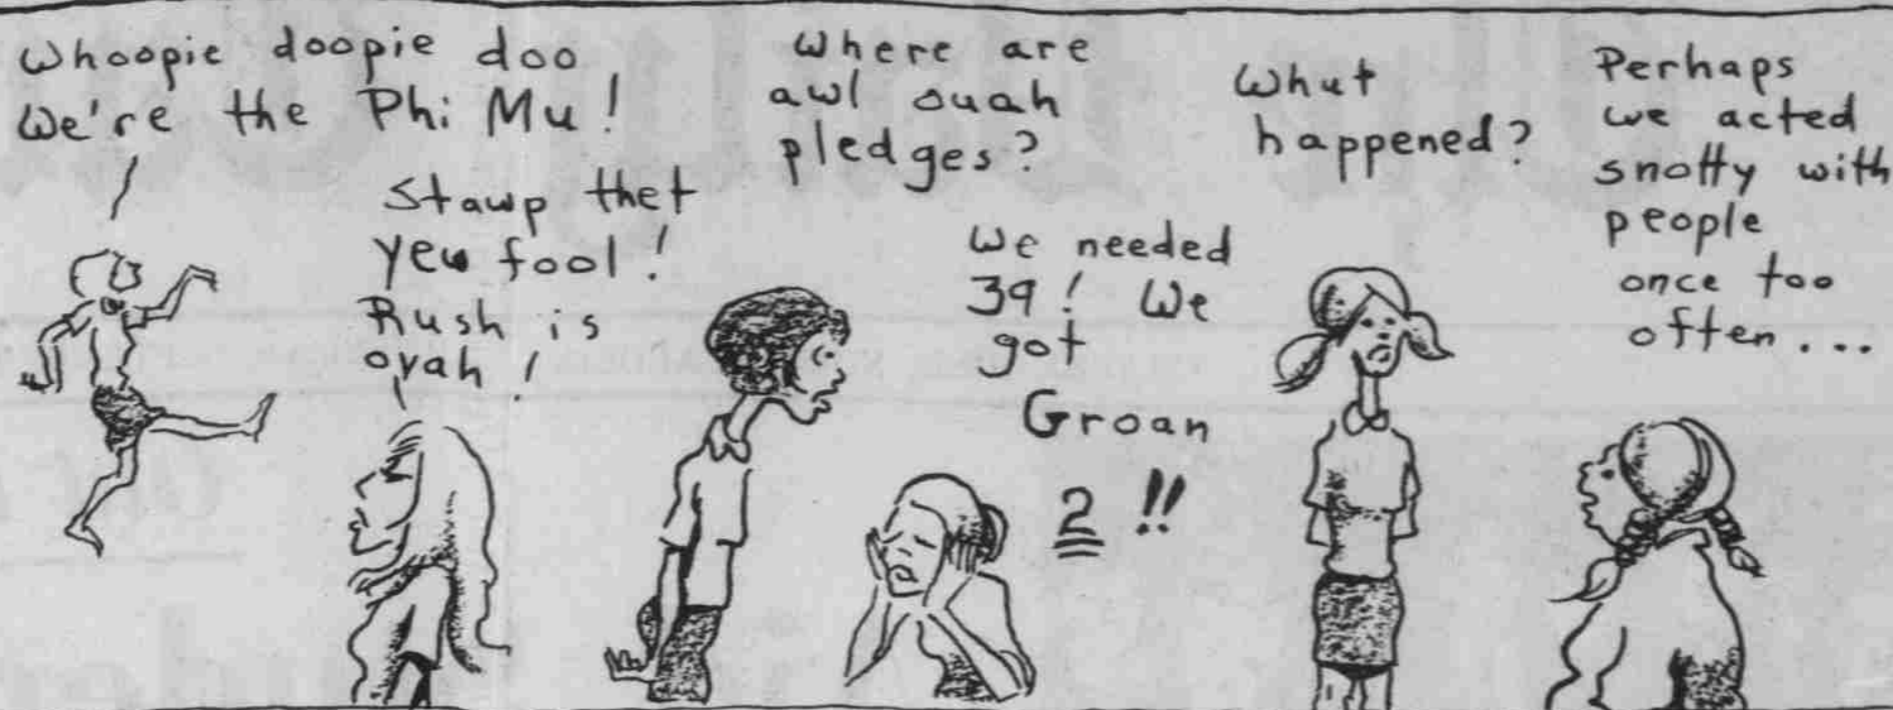 Whoopie doopie doo
We're the Phi Mu!
Stawp thet
yew fool!
Rush is
ovah!
Where are
awl ouah
pledges?
We needed
39! We
got
Groan
2!!
Whut
happened?
Perhaps
we acted
snotty with
people
once too
often...